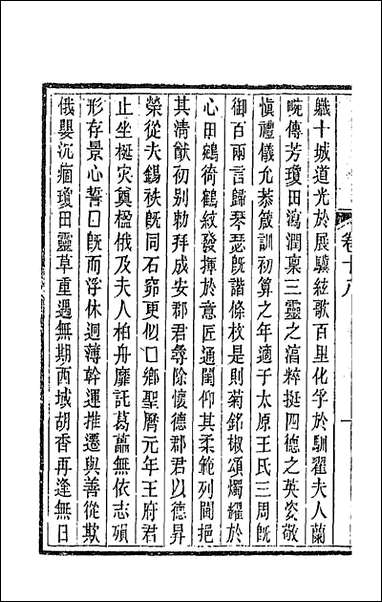 軄十城道光於展驥絃歌百里化孚於馴翟夫人蘭
畹傳芳瓊田瀉潤稟三靈之滈粹挺四德之英姿敬
慎禮儀允恭箴訓初算之年適于太原王氏三周旣
御百兩言歸琴瑟旣諧條枚是則菊銘椒頌燭耀於
心田鶴綺鶴紋發揮於意匠通閨仰其柔範列閫挹
其淸猷初别勅拜成安郡君尋除懷德郡君以德昇
榮從夫錫袟旣同石窌更似□鄉聖曆元年王府君
止坐梃灾奠楹俄及夫人柏舟靡託葛藟無依志殞
形存景心誓□旣而浮休迴薄幹運推遷與善從欺
俄嬰沉痼瓊田靈草重遇無期西域胡香再逢無日
卷十八